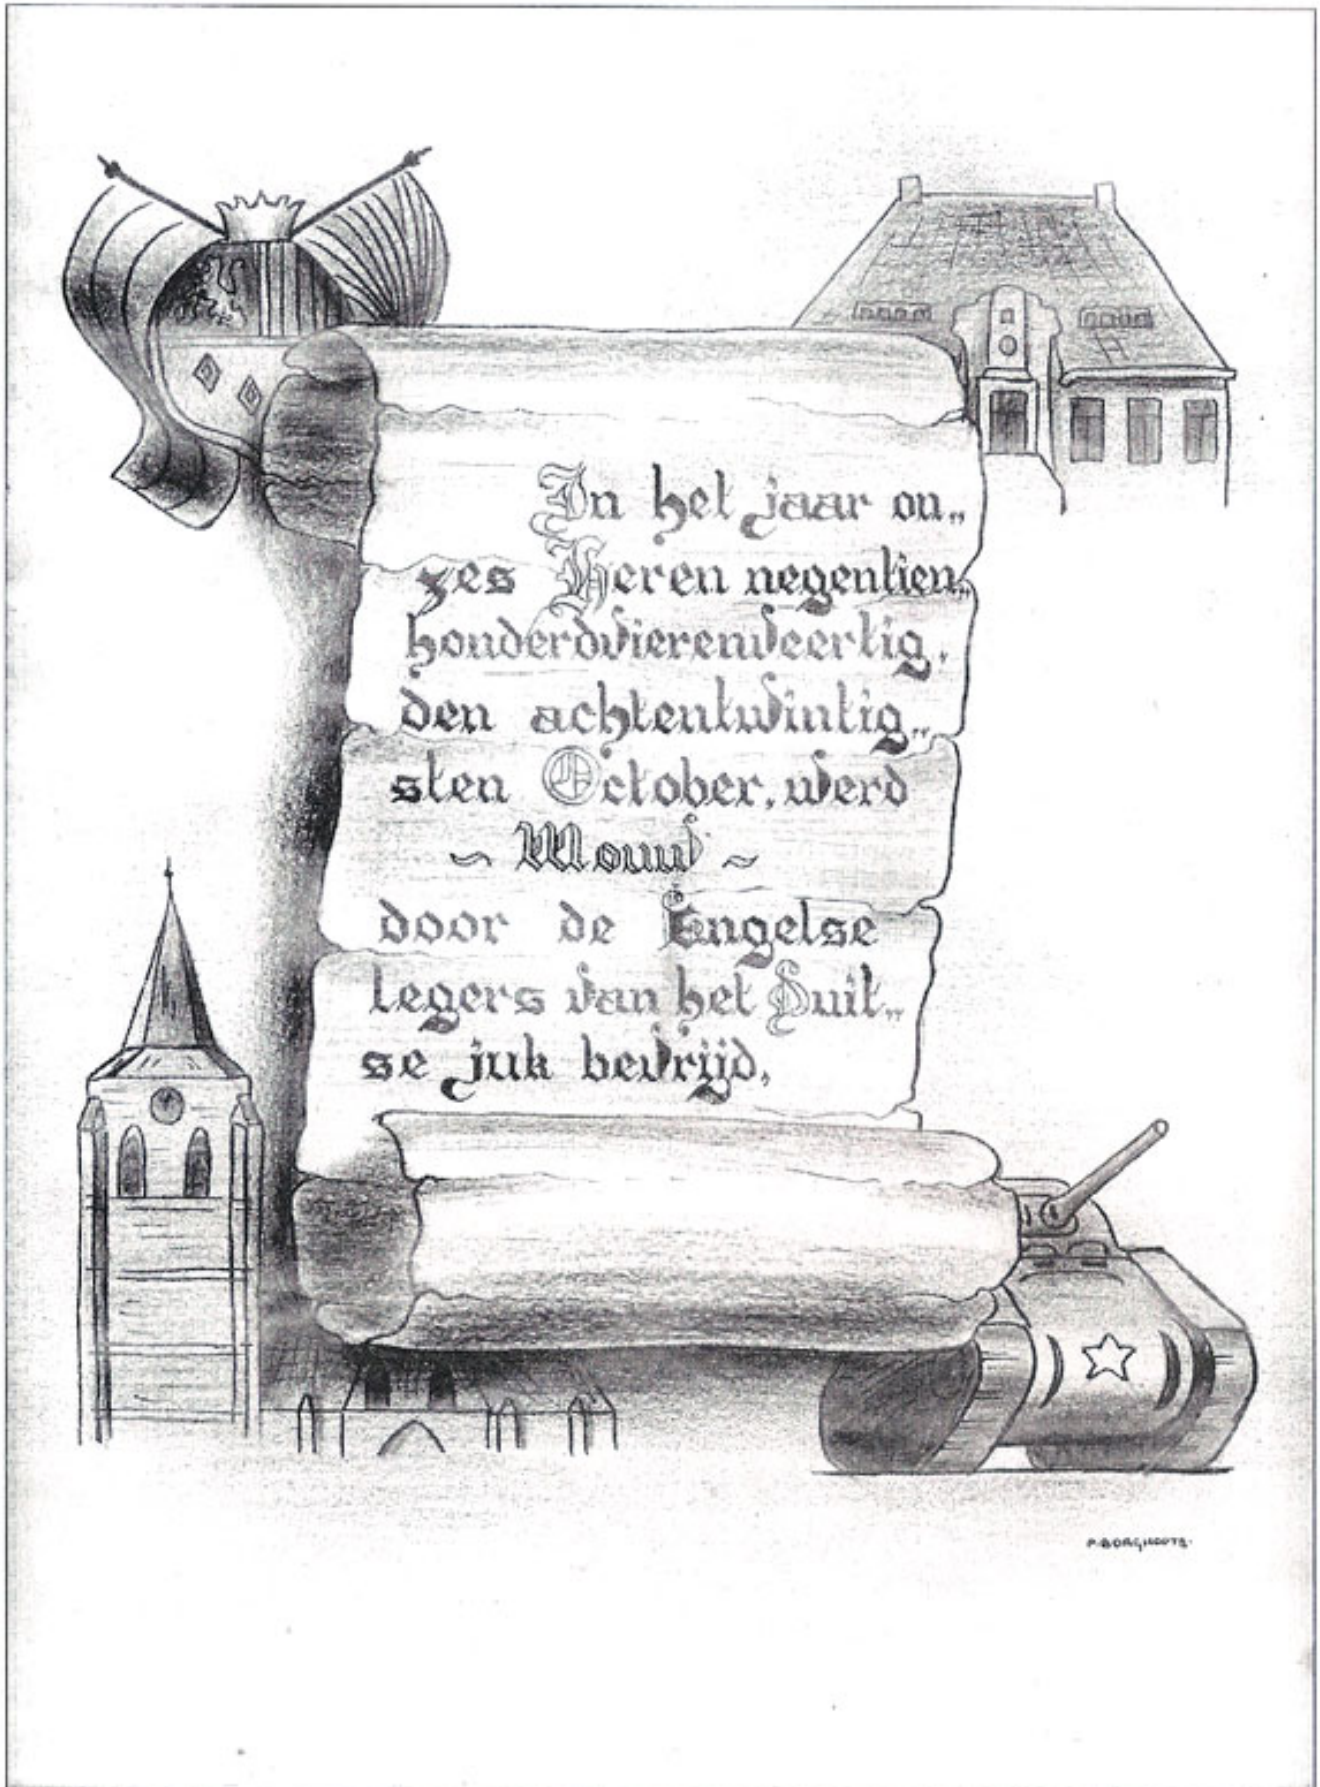 In het jaar on„
zes Heren negentien„
honderdvierenveertig,
den achtentwintig„
sten October, werd
~ Wouw ~
door de Engelse
legers van het Duit„
se juk bevrijd,
P. BORGHOUTS.